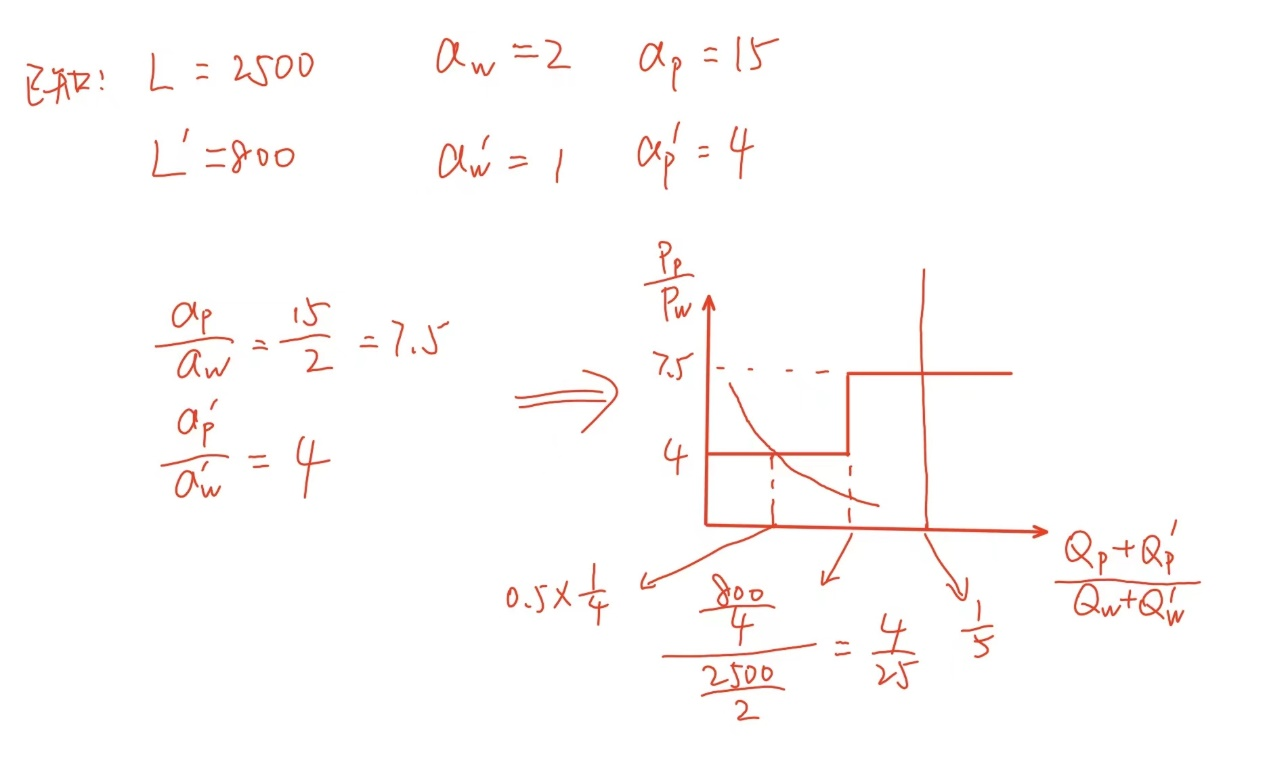 已知: L = 2500 a_w = 2 a_p = 15
L' = 800 a_w' = 1 a_p' = 4
a_p/a_w = 15/2 = 7.5
a_p'/a_w' = 4
⟹
P_p/P_w
7.5
4
(Q_p+Q_p')/(Q_w+Q_w')
0.5×1/4
(800/4)/(2500/2) = 4/25
1/5